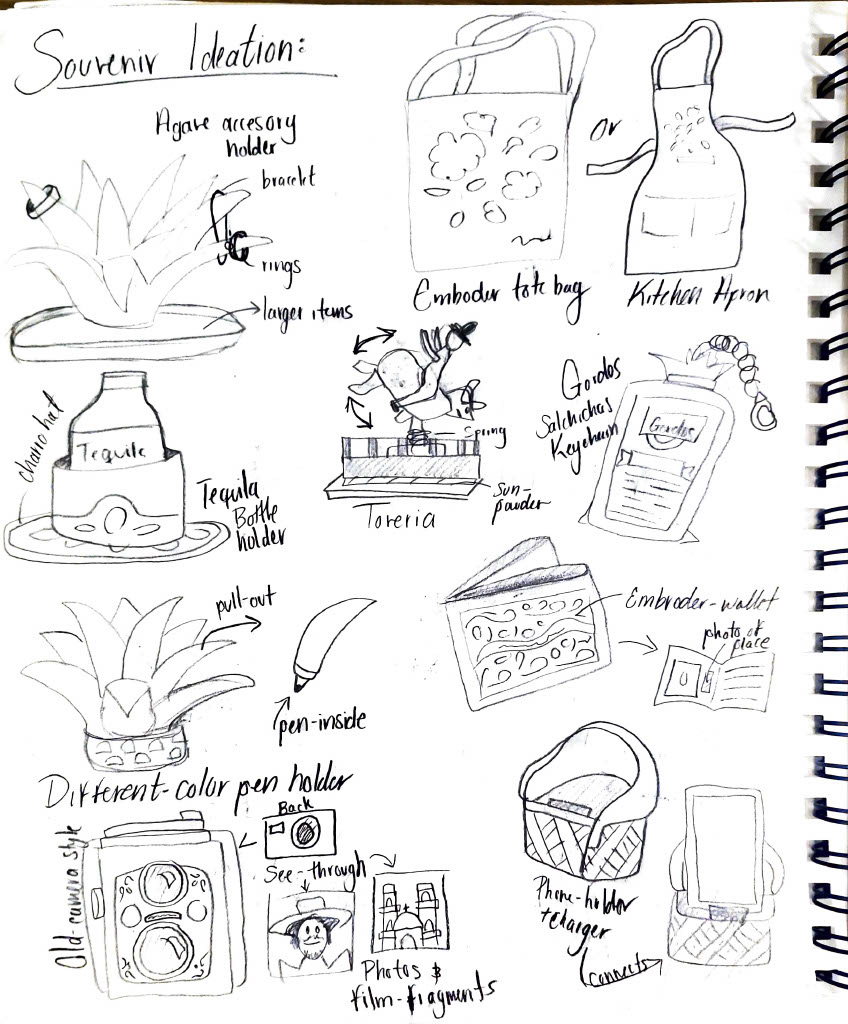 Souvenir Ideation:
Agave accesory
holder
bracelet
rings
larger items
or
Emboder tote bag
Kitchen Apron
charro hat
Tequila
Tequila
Bottle
holder
Spring
Sun-
powder
Toreria
Gordos
Salchichas
Keychain
Gordos
pull-out
pen-inside
Different-color pen holder
Embroder-wallet
photo of
place
Old-camera style
Back
See-through
Photos &
film-fragments
Phone-holder
+charger
connects